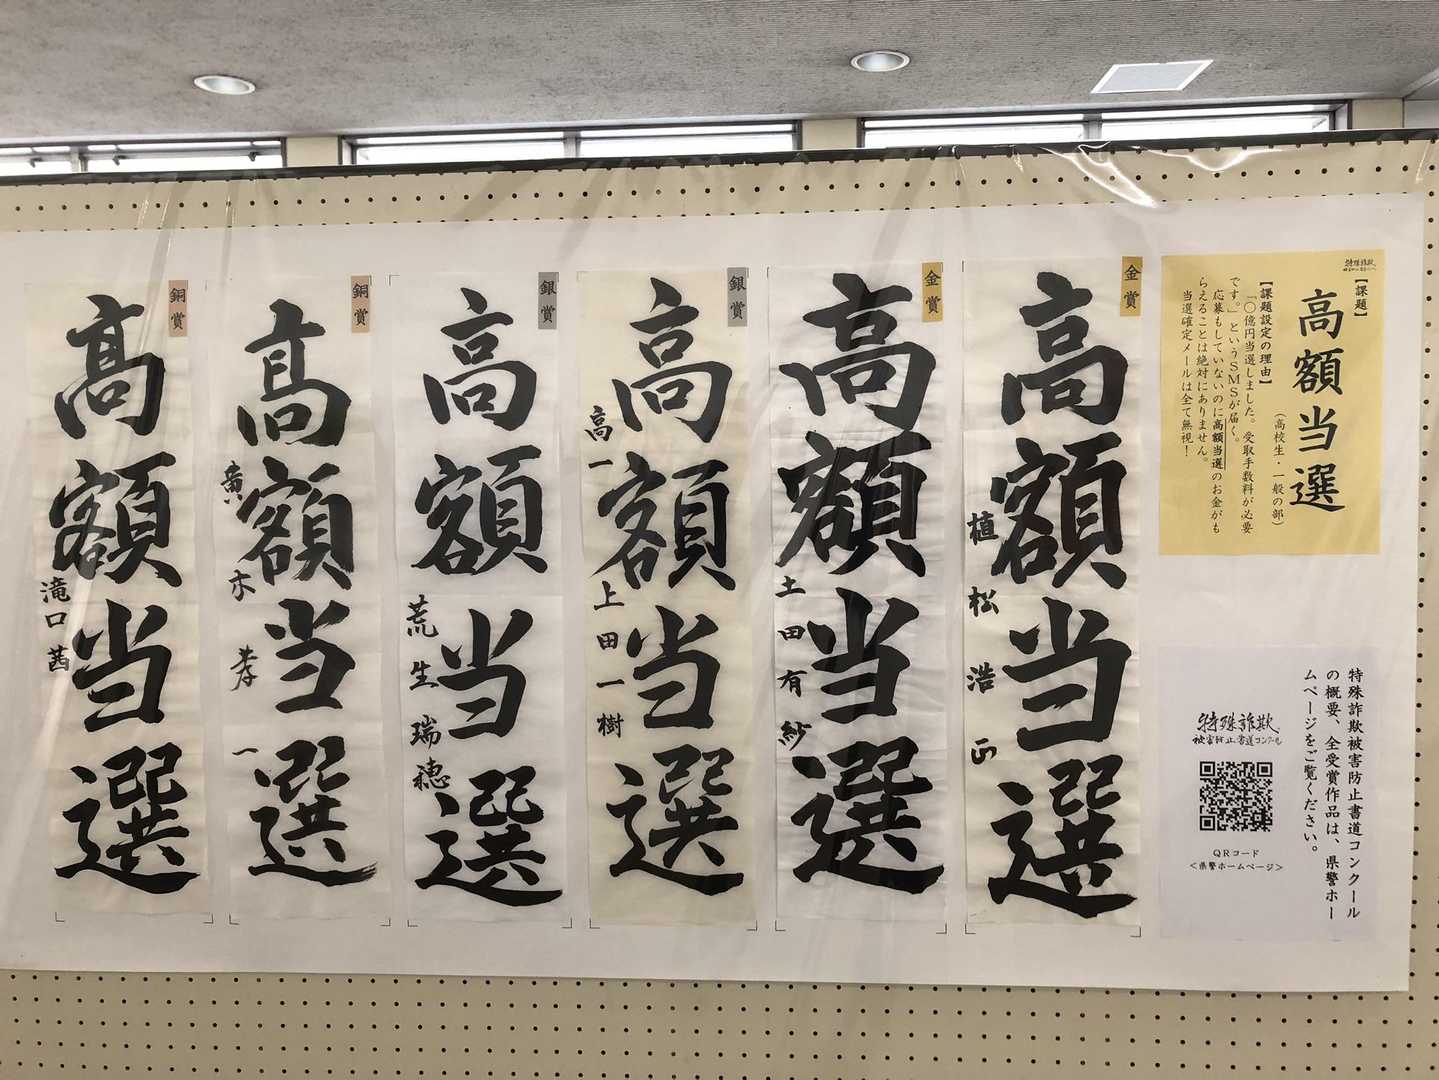 特殊詐欺
【課題】
高額当選
(高校生・一般の部)
【課題設定の理由】
「〇億円当選しました。受取手数料が必要
です。」というSMSが届く。
応募もしていないのに高額当選のお金がも
らえることは絶対にありません。
当選確定メールは全て無視！
特殊詐欺被害防止書道コンクール
の概要、全受賞作品は、県警ホー
ムページをご覧ください。
特殊詐欺
被害防止書道コンクール
QRコード
<県警ホームページ>
金賞
高額当選
植松浩正
金賞
高額当選
土田有紗
銀賞
高額当選
高一 上田一樹
銀賞
高額当選
荒生瑞穂
銅賞
高額当選
孝一
銅賞
高額当選
滝口茜